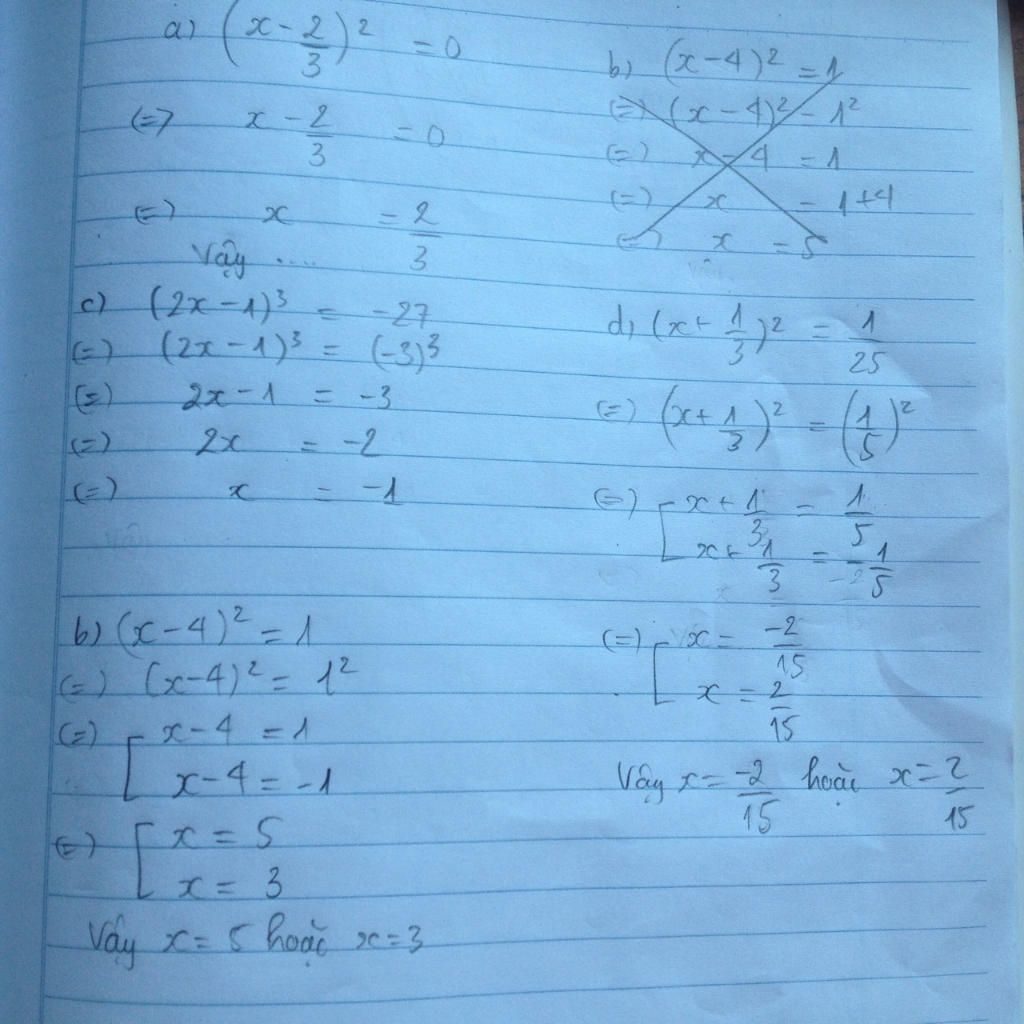 a) (x - 2/3)² = 0
(=) x - 2/3 = 0
(=) x = 2/3
Vậy ....
b) (x-4)² = 1
(=) (x-4)² = 1²
(=) x-4 = 1
(=) x = 1+4
(=) x = 5
c) (2x-1)³ = -27
(=) (2x-1)³ = (-3)³
(=) 2x-1 = -3
(=) 2x = -2
(=) x = -1
d) (x+ 1/3)² = 1/25
(=) (x+ 1/3)² = (1/5)²
(=) [ x + 1/3 = 1/5
x + 1/3 = -1/5
(=) [ x = -2/15
x = 2/15
Vậy x = -2/15 hoặc x = 2/15
b) (x-4)² = 1
(=) (x-4)² = 1²
(=) [ x-4 = 1
x-4 = -1
(=) [ x = 5
x = 3
Vậy x = 5 hoặc x=3